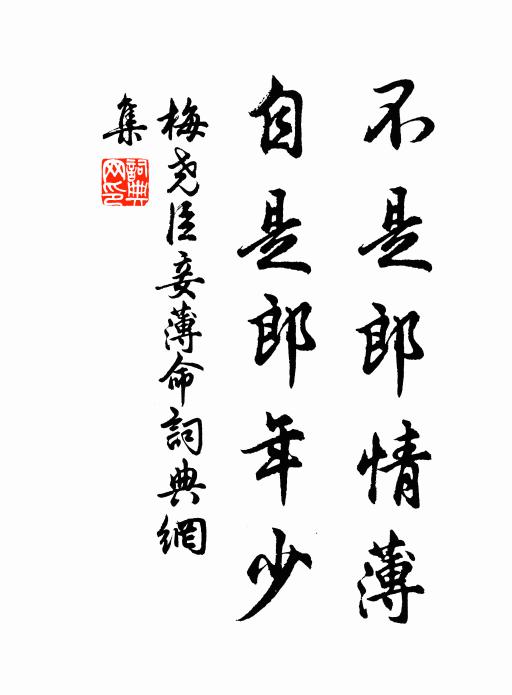 不是郎情薄
自是郎年少
梅尧臣妾薄命詞典網
集
詞典網印